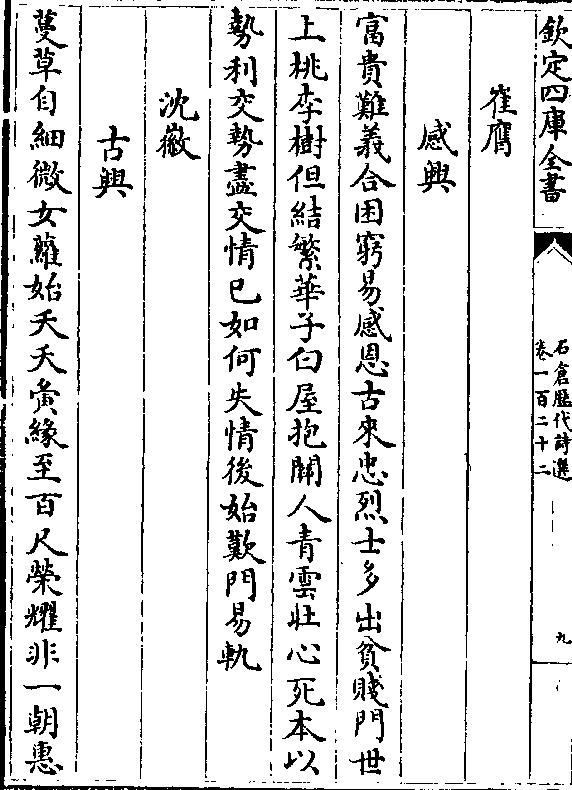 欽定四庫全書
石倉歷代詩選
卷一百二十二
九
崔膺
感興
富貴難義合困窮易感恩古來忠烈士多出貧賤門世
上桃李樹但結繁華子白屋抱關人青雲壯心死本以
勢利交勢盡交情已如何失情後始歎門易軌
沈徽
古興
蔓草自細微女蘿始夭夭夤緣至百尺榮耀非一朝惠